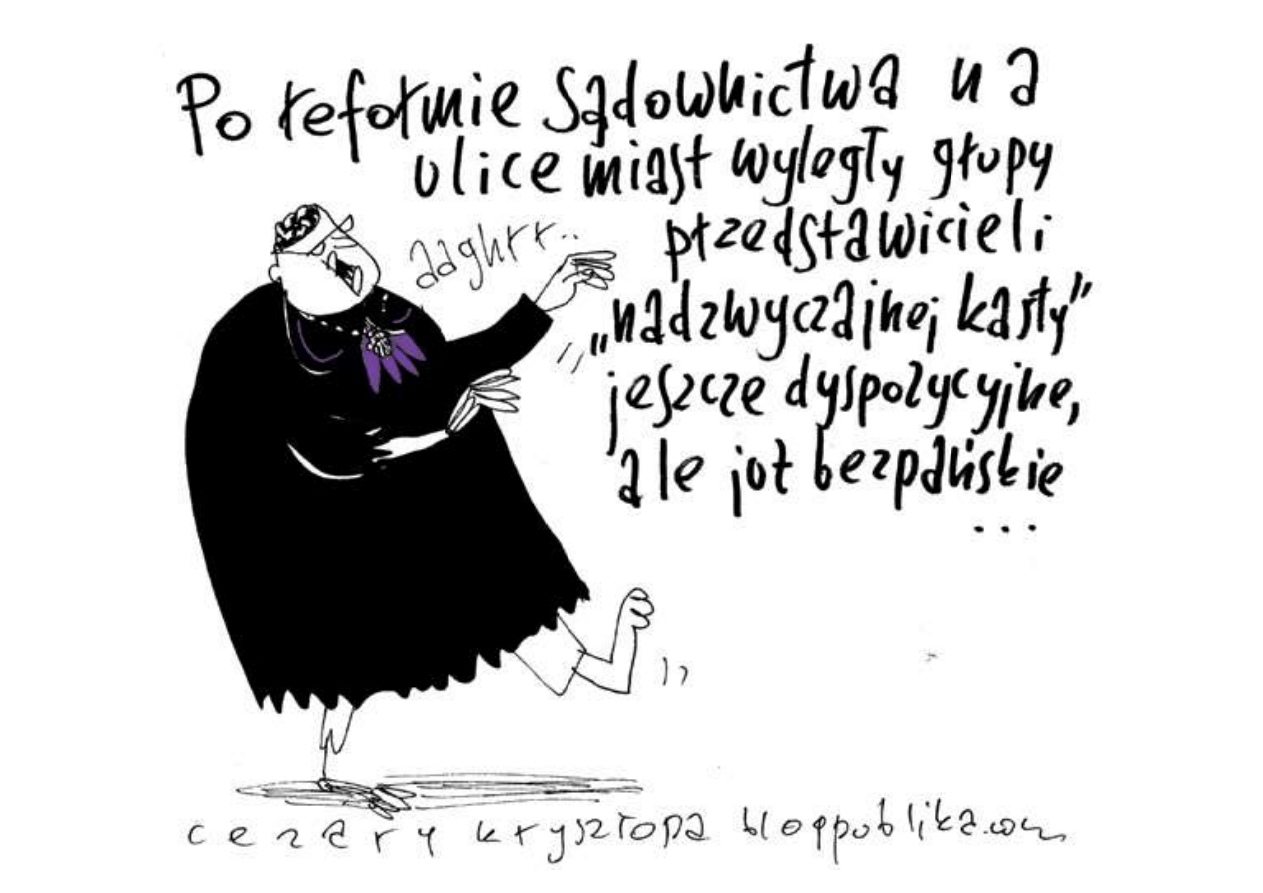 Po reformie sądownictwa na
ulice miast wyległy grupy
aaghrr..
przedstawicieli
„nadzwyczajnej kasty”
jeszcze dyspozycyjne,
ale już bezpańskie
...
cezary krysztopa blogpublika.com